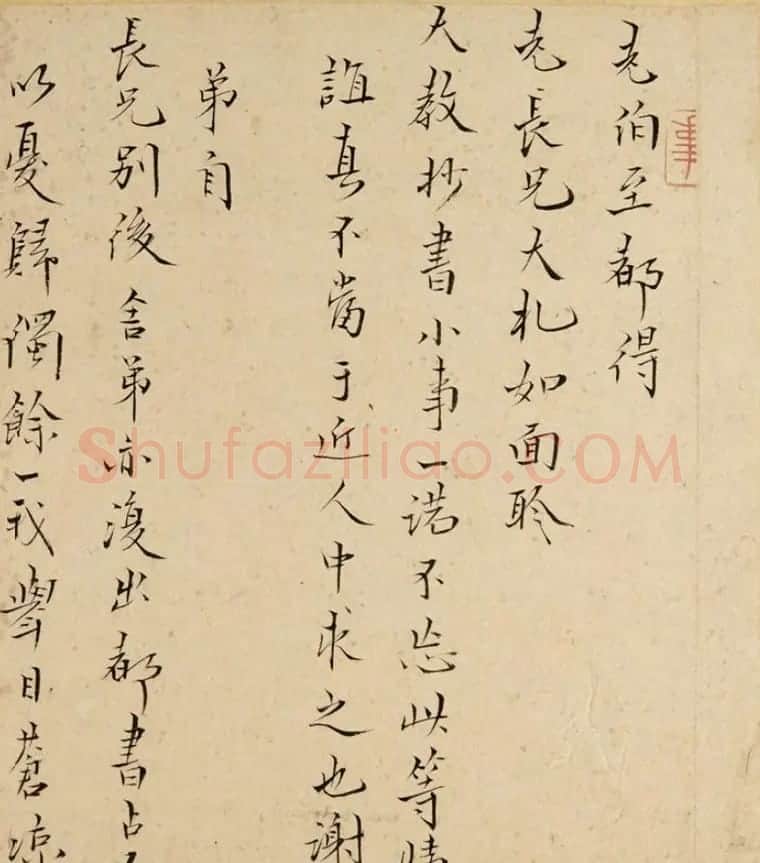 老伯至都得
老長兄大札如面聆
大教抄書小事一諾不忘此等情
誼真不當于近人中求之也謝
弟自
長兄別後舍弟亦復出都書占
以憂歸獨餘一我舉目蒼涼
ShufaziliaO.COM